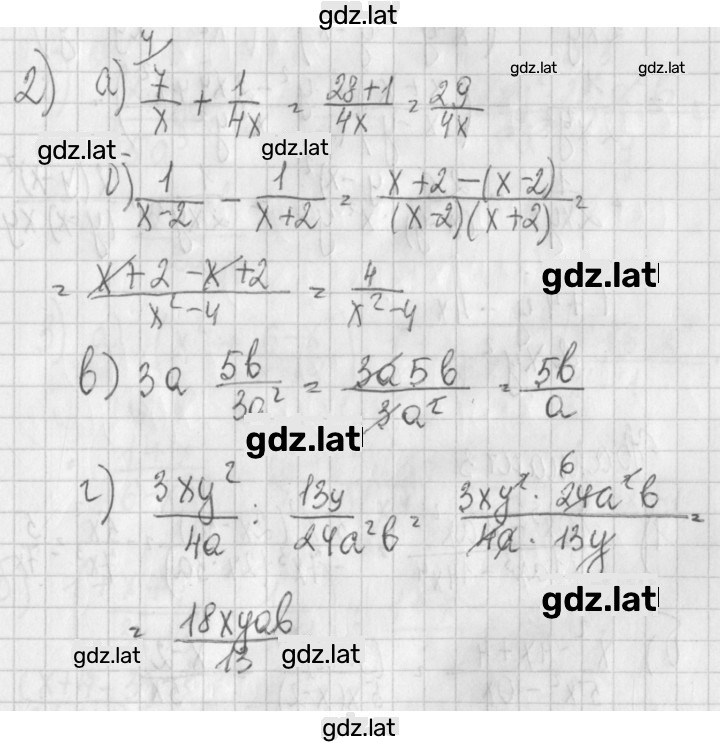 gdz.lat
4
2) а) 7/x + 1/4x = 28+1/4x = 29/4x
gdz.lat gdz.lat
gdz.lat gdz.lat
б) 1/x-2 - 1/x+2 = x+2-(x-2)/(x-2)(x+2) =
= x+2-x+2/x²-4 = 4/x²-4
gdz.lat
в) 3a 5b/3a² = 3a5b/3a² = 5b/a
gdz.lat
г) 3xy²/4a : 13y/24a²b = 3xy² · 24a²b/4a · 13y =
6
gdz.lat
= 18xyab/13
gdz.lat gdz.lat
gdz.lat